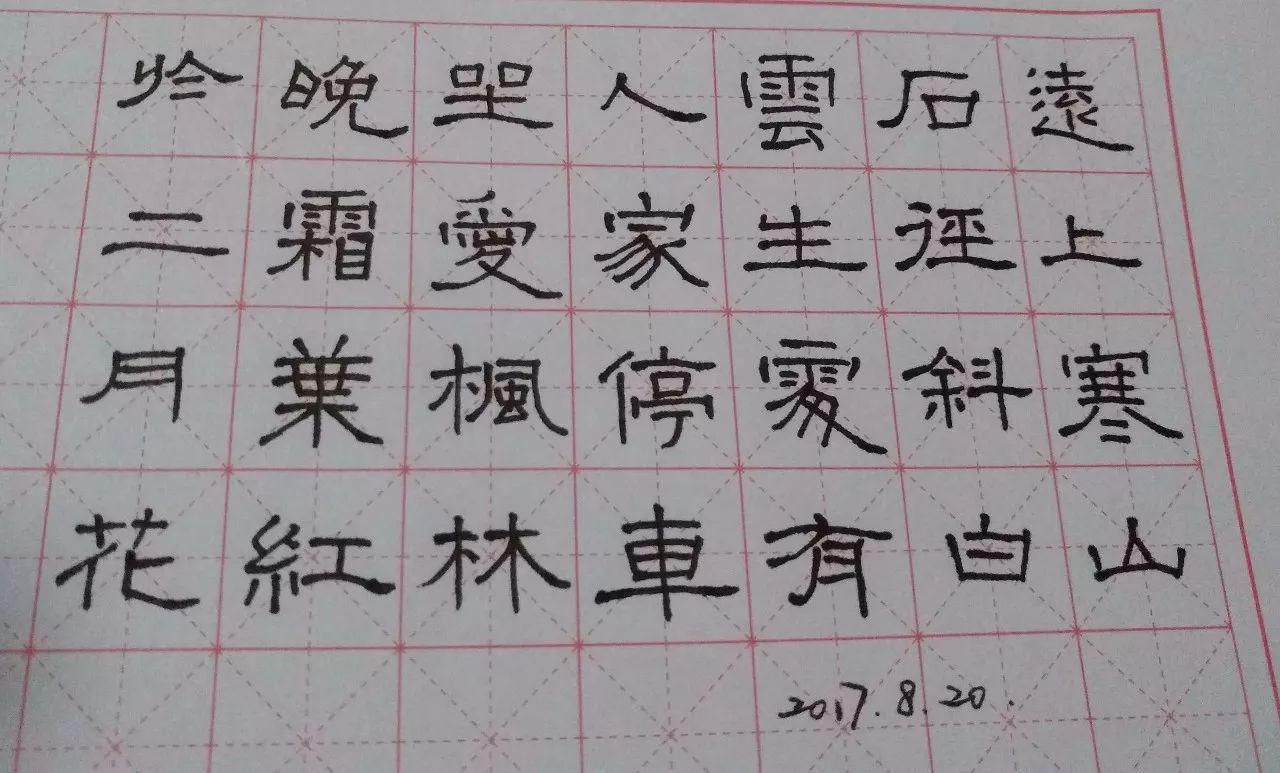 遠上寒山
石徑斜白
雲生處有
人家停車
坐愛楓林
晚霜葉紅
於二月花
2017.8.20.